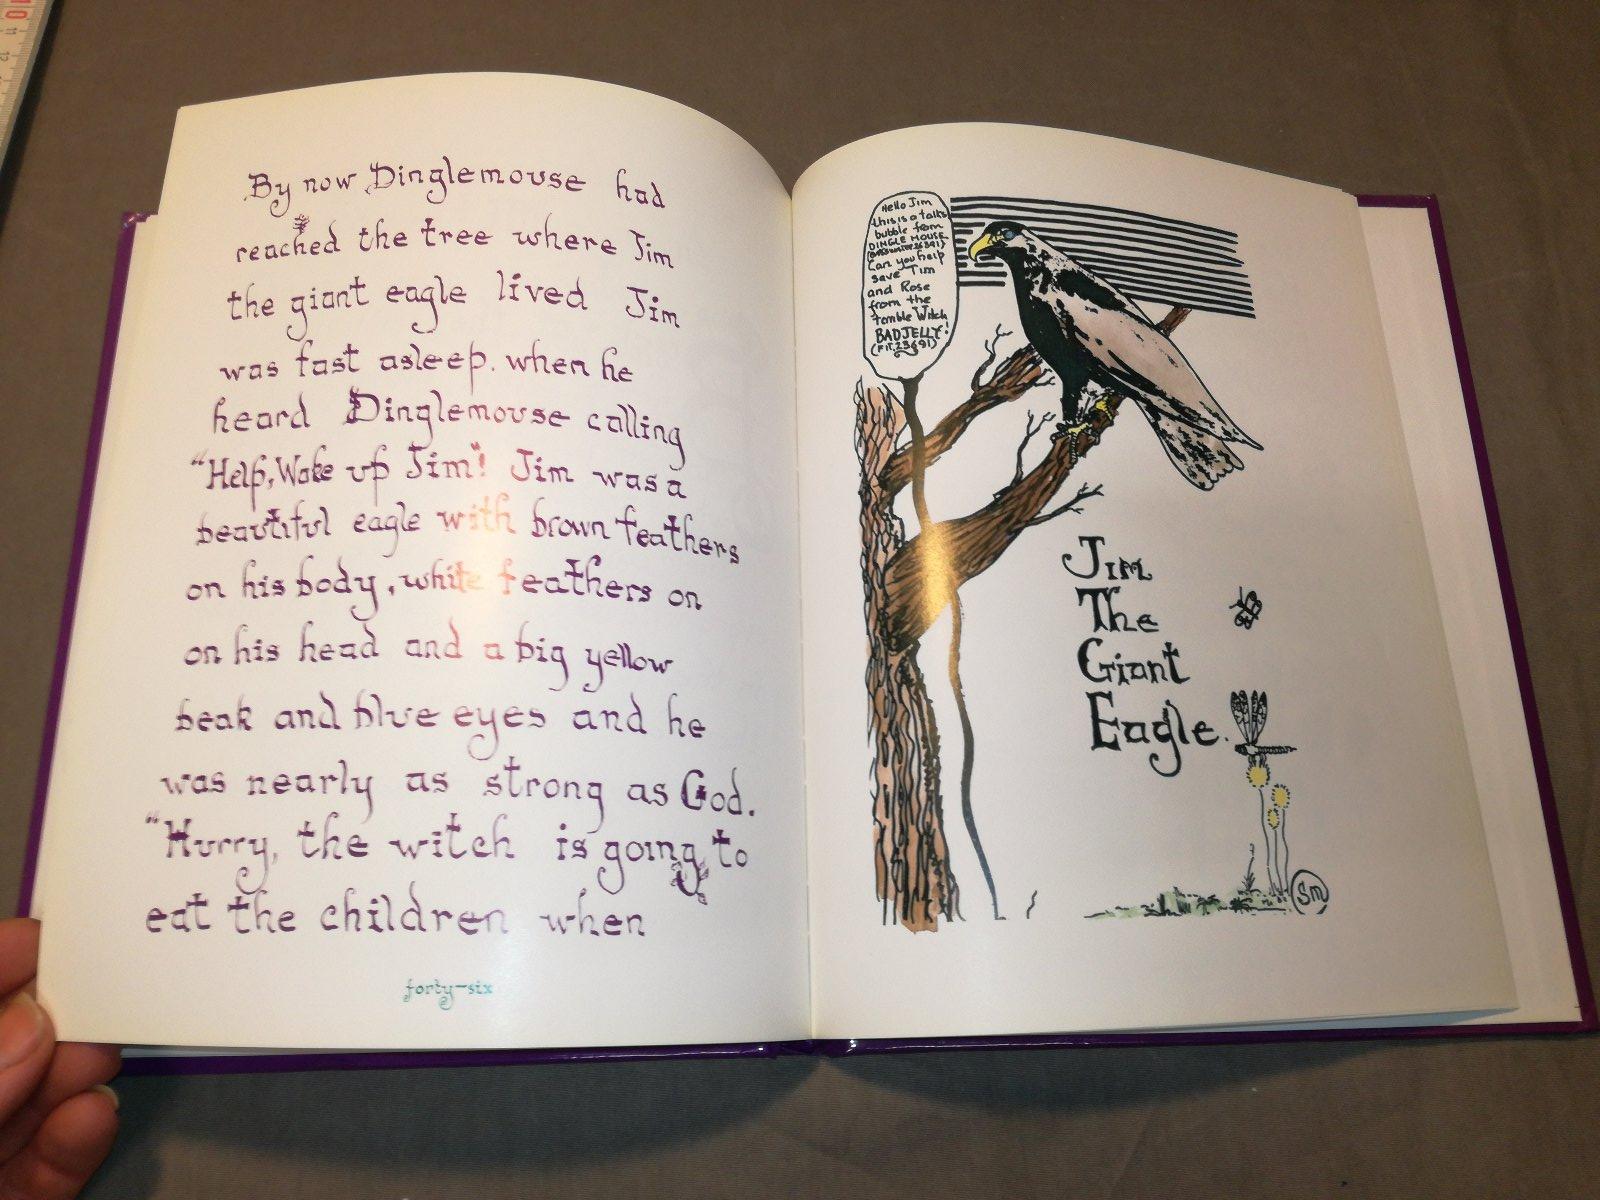 By now Dinglemouse had
reached the tree where Jim
the giant eagle lived Jim
was fast asleep. when he
heard Dinglemouse calling
"Help, Wake up Jim"! Jim was a
beautiful eagle with brown feathers
on his body, white feathers on
on his head and a big yellow
beak and blue eyes and he
was nearly as strong as God.
"Hurry, the witch is going to
eat the children when
forty-six
Hello Jim
this is a talks
bubble from
DINGLE MOUSE
Can you help
save Tim
and Rose
from the
terrible Witch
BADJELLY!
Jim
The
Giant
Eagle.
Sm
10